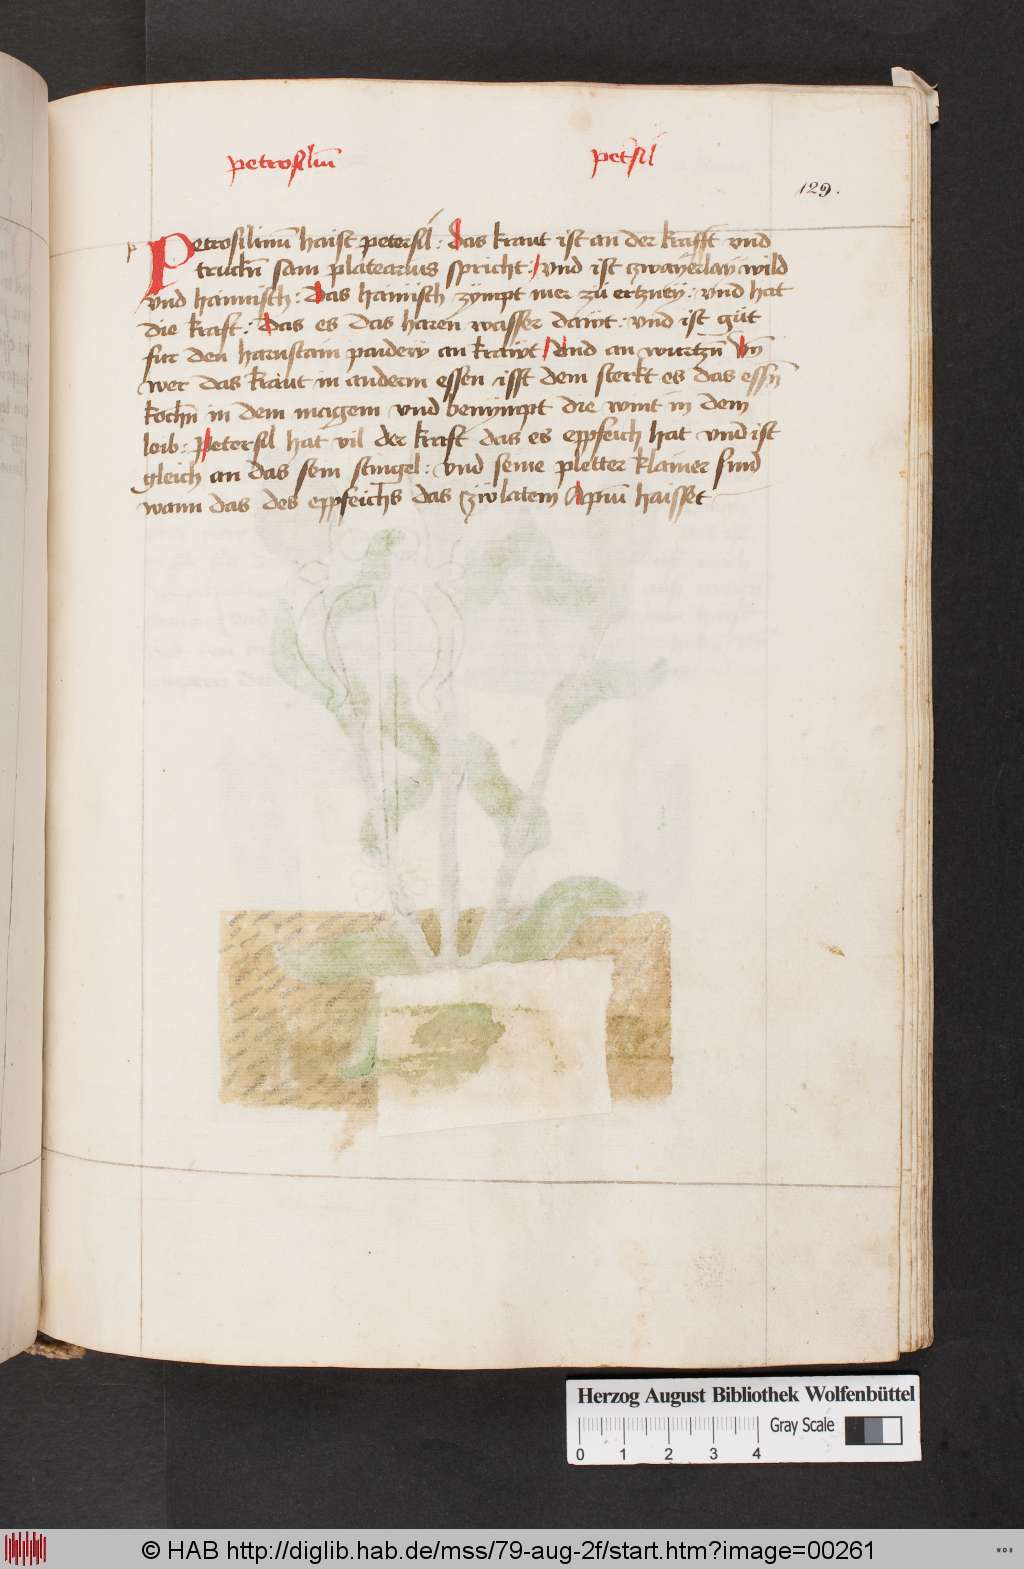 petrosiliu̅ petsil
129.
p
Petrosilinu̅ haist petersil : das kraut ist an der krafft vnd
truckn̅ sam platearius spricht : / vnd ist zwayerlay wild
vnd haimisch : Das haimisch zympt mer zu ertzney : vnd hat
die kraft : das es das haren wasser dawt : vnd ist gůt
fur den harnstain paideꝛ an krawt / Vnd an wurtzn̅ Vn̅
wer das kraut in anderm essen isst dem sterkt es das essn̅
kochn̅ in dem magem vnd benympt die wint in dem
leib : Petersil hat vil der kraft das es eppfeich hat vnd ist
gleich an das sein stingel : vnd seine pletter klainer sind
wann das des eppfeichs das zu latein Apiu̅ haisset
Herzog August Bibliothek Wolfenbüttel
Gray Scale
0 1 2 3 4
© HAB http://diglib.hab.de/mss/79-aug-2f/start.htm?image=00261